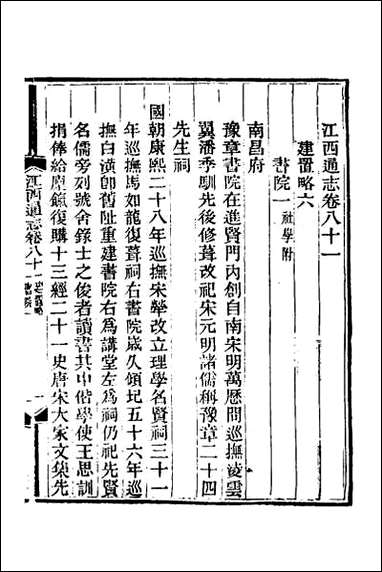 江西通志卷八十一
建置略六
書院一社學附
南昌府
豫章書院在進賢門內創自南宋明萬歷間巡撫淩雲
翼潘季馴先後修葺改祀宋元明諸儒稱豫章二十四
先生祠
國朝康熙二十八年巡撫宋犖改立理學名賢祠三十一
年巡撫馬如龍復葺祠右書院歲久傾圮五十六年巡
撫白潢師舊阯重建書院右爲講堂左爲祠仍祀先賢
名儒旁列號舍錄士之俊者讀書其中偕學使王思訓
捐俸給廩餼復購十三經二十一史唐宋大家文集先
江西通志卷八十一